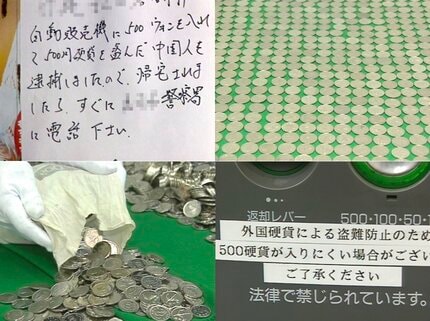 自動販売機に500ウォンを入れ
て500円硬貨を盗んだ中国人を
逮捕しましたので、帰宅されま
したらすぐに 警察署
に電話下さい。
返却レバー
500・100・50・1
外国硬貨による盗難防止のため
500硬貨が入りにくい場合がござい
ご了承ください
法律で禁じられています。